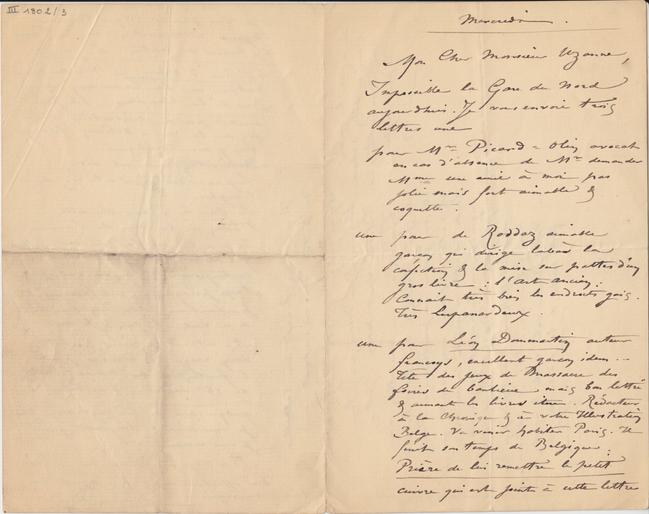 III 1802/3
Mercredi.
Mon Cher Monsieur Uzanne,
Impossible la Gare du Nord
aujourd'hui. Je vous envoie trois
lettres une
pour Mr Picard = Olin avocat
en cas d'absence de Mr demander
Mme une amie à moi pas
jolie mais fort aimable &
coquette.
une pour de Roddaz aimable
garçon qui dirige labàs la
confection & la mise sur pattes d'un
gros livre: l'art ancien:
Connait très bien les endroits gais.
Très lupanardeux.
une pour Léon Dommartin auteur
français, excellent garçon idem...
Tête des jeux de Massacre des
foires de banlieue mais bon lettré
& aimant les livres. Rédacteur
à la Chronique & à votre Illustration
Belge. Va venir habiter Paris. Il
finit son temps de Belgique:
Prière de lui remettre le petit
cuivre qui est joint à cette lettre